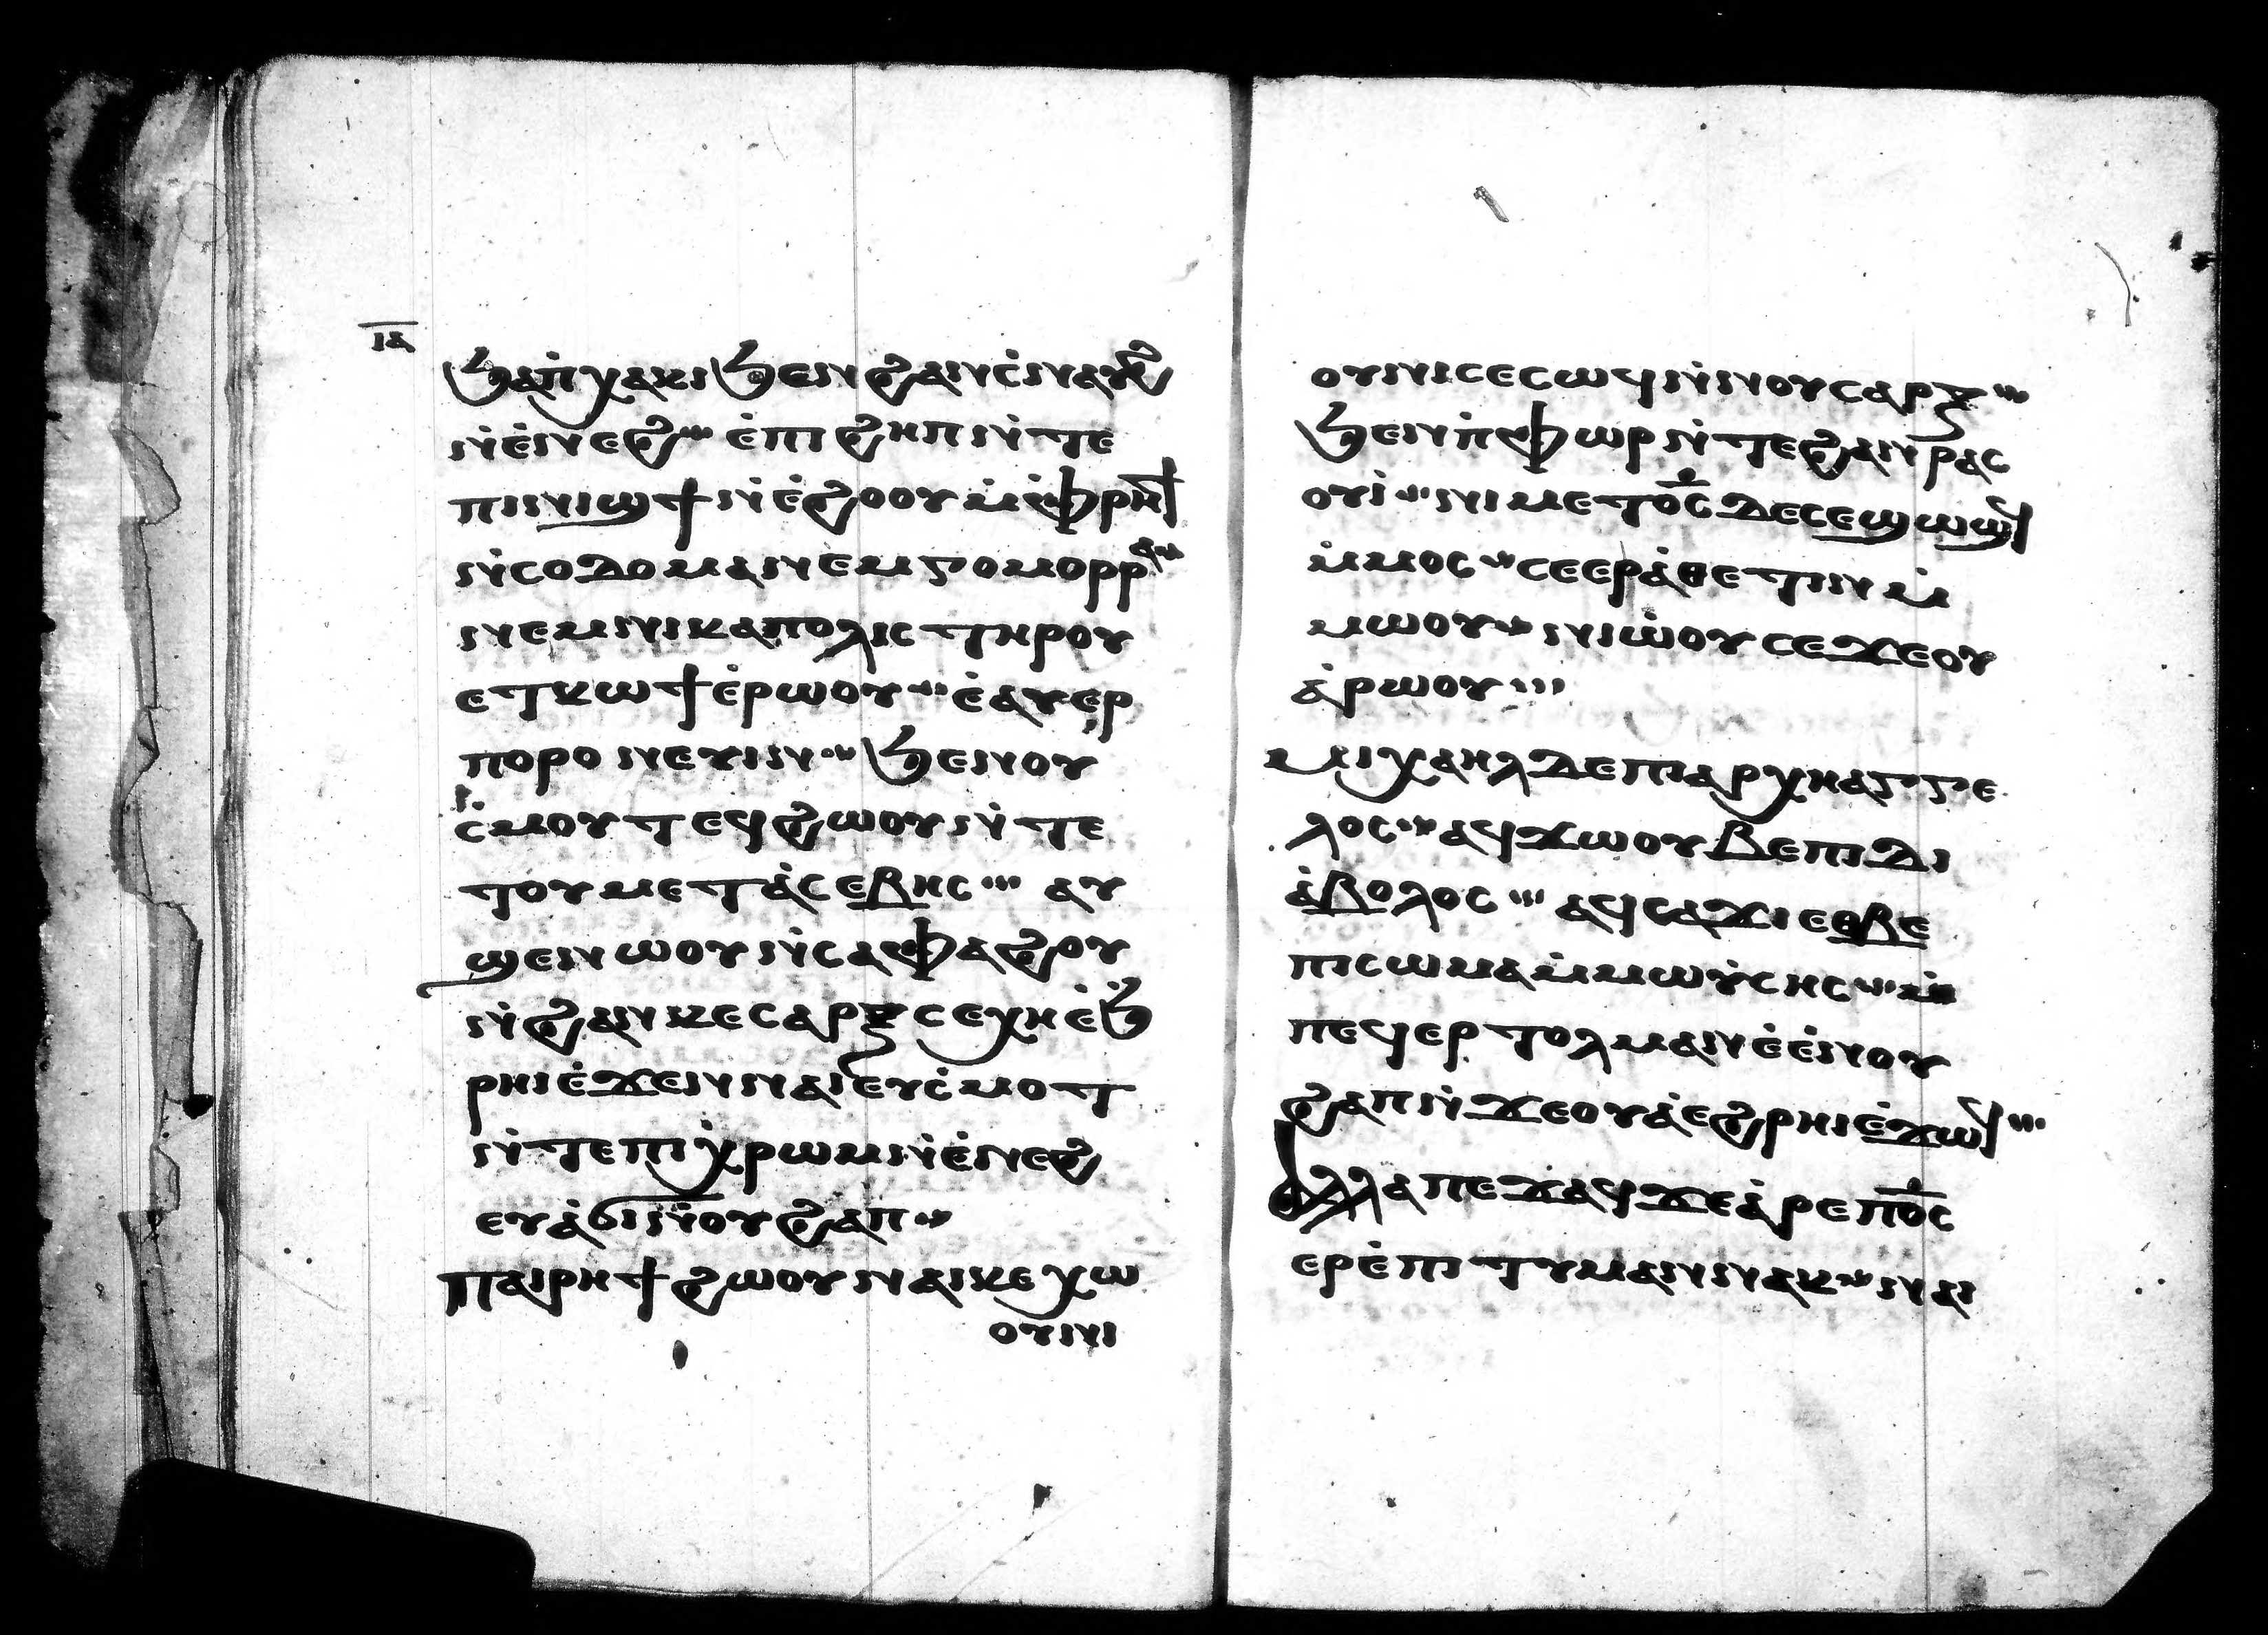 ⲓⲁ
ϧⲁⲡ̇ⲭⲁⲕⲓϧⲉⲛϩⲁⲛⲥ̇ⲛⲁⲩϩ
ⲛ̇ⲉ̇ⲛⲉϩ ⲉ̇ⲡⲓϩⲏⲡⲛ̇ⲧⲉ
ⲡⲓⲛⲓϣϯⲛ̇ⲉ̇ϩⲟⲟⲩⲙ̇ⲫ̇ⲣⲏϯ
ⲛ̇ⲥⲟⲇⲟⲙⲁⲛⲉⲙⲅⲟⲙⲟⲣⲣⲁ
ⲛⲉⲙⲛⲓⲕⲁⲡⲟⲗⲓⲥⲧⲏⲣⲟⲩ
ⲉⲧⲕⲱϯⲉ̇ⲣⲱⲟⲩ ⲉ̇ⲁⲩⲉⲣ
ⲡⲟⲣⲟⲛⲉⲩⲓⲛ ϧⲉⲛⲟⲩ
ⲥ̇ⲙⲟⲩⲧⲉϥϩⲱⲟⲩⲛ̇ⲧⲉ
ⲧⲟⲩⲙⲉⲧⲁ̇ⲥⲉⲃⲏⲥ ⲁⲩ
ϣⲉⲛⲱⲟⲩⲛ̇ⲥⲁⲫⲁϩⲟⲩ
ⲛ̇ϩⲁⲛⲕⲉⲥⲁⲣⲝⲥⲉⲭⲏⲉ̇ϧ̇
ⲣⲏⲓⲉ̇ϫⲉⲛⲛⲁⲓⲉⲩⲥ̇ⲙⲟⲧ
ⲛ̇ⲧⲉⲡⲓⲭ̇ⲣⲱⲙⲛ̇ⲉ̇ⲛⲉϩ
ⲉⲩⲁ̇ϭⲓⲛ̇ⲟⲩϩⲁⲡ
ⲡⲁⲓⲣⲏϯϩⲱⲟⲩⲛⲁⲓⲕⲉⲭⲱ
ⲟⲩⲛⲓ
ⲟⲩⲛⲓⲥⲉⲥⲱϥⲛ̇ⲛⲟⲩⲥⲁⲣⲝ
ϧⲉⲛⲡ̇ⲫⲱⲣⲛ̇ⲧⲉϩⲁⲛⲣⲁⲥ
ⲟⲩⲓ̇ ⲛⲓⲙⲉⲧⲟ̅ⲥ̅ⲇⲉⲥⲉϣⲱϣϥ
ⲙ̇ⲙⲟⲥ ⲥⲉⲉⲣⲁ̇ⲑⲉⲧⲓⲛⲙ̇
ⲙⲱⲟⲩ ⲛⲓⲱ̇ⲟⲩⲥⲉϫⲉⲟⲩ
ⲁ̇ⲣⲱⲟⲩ
ⲙⲓⲭⲁⲏⲗⲇⲉⲡⲓⲁⲣⲭⲏⲁⲅⲅⲉ
ⲗⲟⲥ ⲁϥϫⲱⲟⲩⲃⲉⲡⲓⲇⲓ
ⲁ̇ⲃⲟⲗⲟⲥ ⲁϥⲥⲁϫⲓⲉⲑⲃⲉ
ⲡⲓⲥⲱⲙⲁⲙ̇ⲙⲱⲩ̇ⲥⲏⲥ ⲙ̇
ⲡⲉϥⲉⲣⲧⲟⲗⲙⲁⲛⲉ̇ⲉ̇ⲛⲟⲩ
ϩⲁⲡⲛ̇ϫⲉⲟⲩⲁ̇ⲉϩⲣⲏⲓⲉ̇ϫⲱϥ
ⲁⲗⲗⲁⲡⲉϫⲁϥϫⲉⲁ̇ⲣⲉⲡⲟ̅ⲥ̅
ⲉⲣⲉ̇ⲡⲓⲧⲩⲙⲁⲛⲛⲁⲕ ⲛⲁⲓ